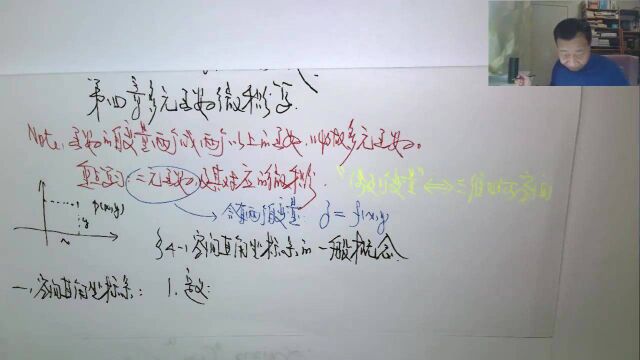 第四章 多元函数微积分
Note: 函数的自变量两个或两个以上的函数,叫做多元函数。
重点学习二元函数及其对应的微积分
含有两个自变量 z = f(x,y)
⟺ 三维
P(x,y)
y
x
§4-1 空间直角坐标系的一般概念
一、空间直角坐标系: 1. 定义: